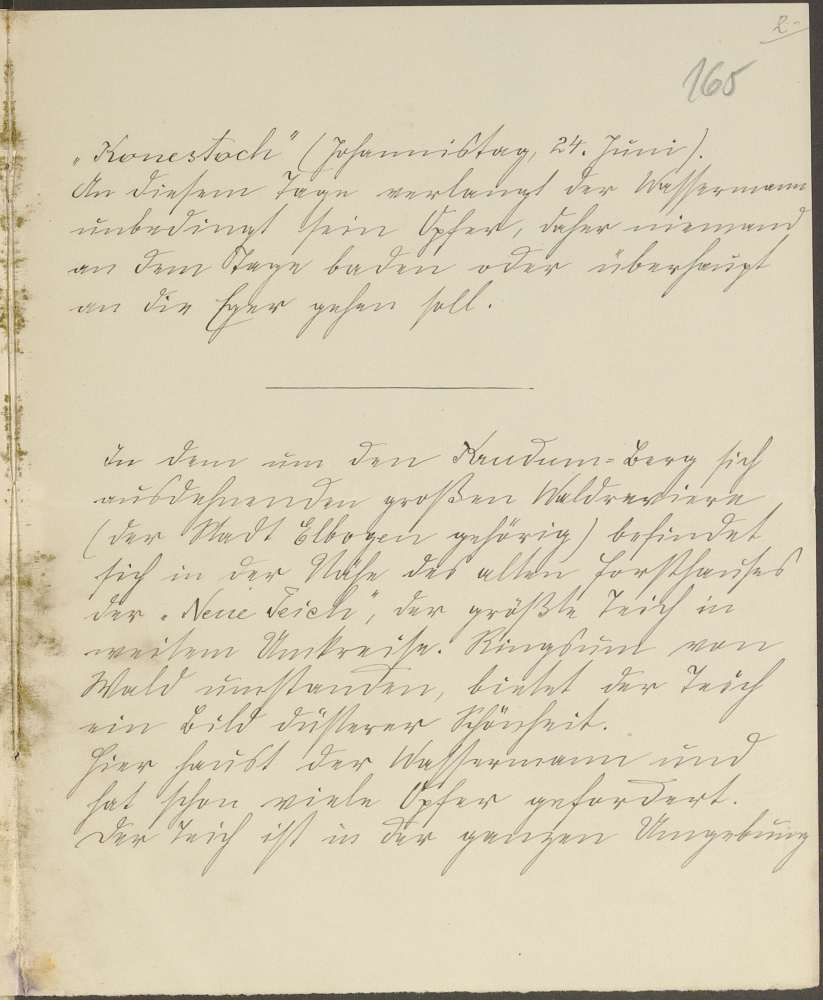 2.-
165
„Konestoch" (Johannistag, 24. Juni).
An diesem Tage verlangt der Wassermann
unbedingt sein Opfer, daher niemand
an dem Tage baden oder überhaupt
an die Eger gehen soll.
In dem um den Knudum-Berg sich
ausdehnenden großen Waldreviere
(der Stadt Elbogen gehörig) befindet
sich in der Nähe des alten Forsthauses
der „Neue Teich", der größte Teich in
weitem Umkreise. Ringsum von
Wald umstanden, bietet der Teich
ein Bild düsterer Schönheit.
Hier haust der Wassermann und
hat schon viele Opfer gefordert.
Der Teich ist in der ganzen Umgebung